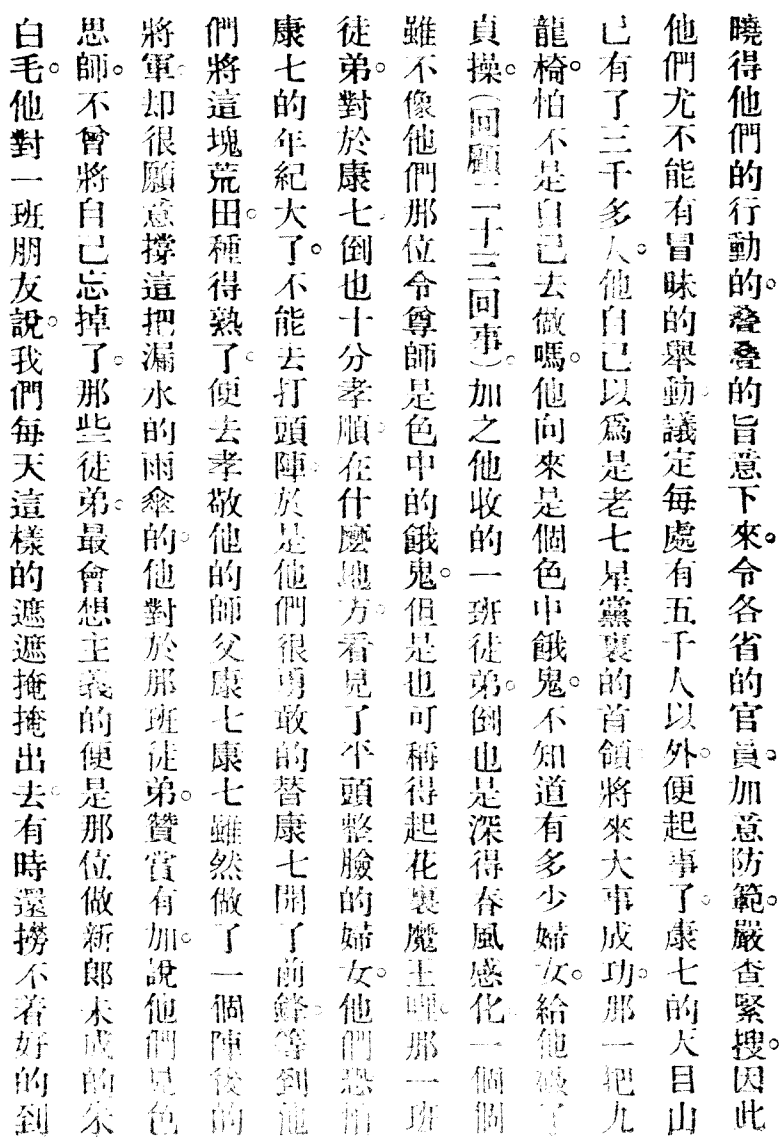 曉得他們的行動的。疊疊的旨意下來。令各省的官員。加意防範。嚴查緊搜。因此
他們尤不能有冒昧的舉動。議定每處有五千人以外。便起事了。康七的天目山
已有了三千多人。他自己以爲是老七星黨裏的首領。將來大事成功。那一把九
龍椅。怕不是自己去做嗎。他向來是個色中餓鬼。不知道有多少婦女。給他破了
貞操。(回顧二十三回事)加之他收的一班徒弟。倒也是深得春風感化。一個個
雖不像他們那位令尊師是色中的餓鬼。但是也可稱得起花裏魔王哩。那一班
徒弟。對於康七。倒也十分孝順。在什麼地方。看見了平頭整臉的婦女。他們恐怕
康七的年紀大了。不能去打頭陣。於是他們很勇敢的替康七開了前鋒。等到他
們將這塊荒田。種得熟了。便去孝敬他的師父康七。康七雖然做了一個陣後的
將軍。却很願意撐這把漏水的雨傘的。他對於那班徒弟。贊賞有加。說他們見色
思師。不曾將自己忘掉了。那些徒弟。最會想主義的。便是那位做新郎未成的朱
白毛。他對一班朋友說。我們每天這樣的遮遮掩掩出去。有時還撈不着好的。到